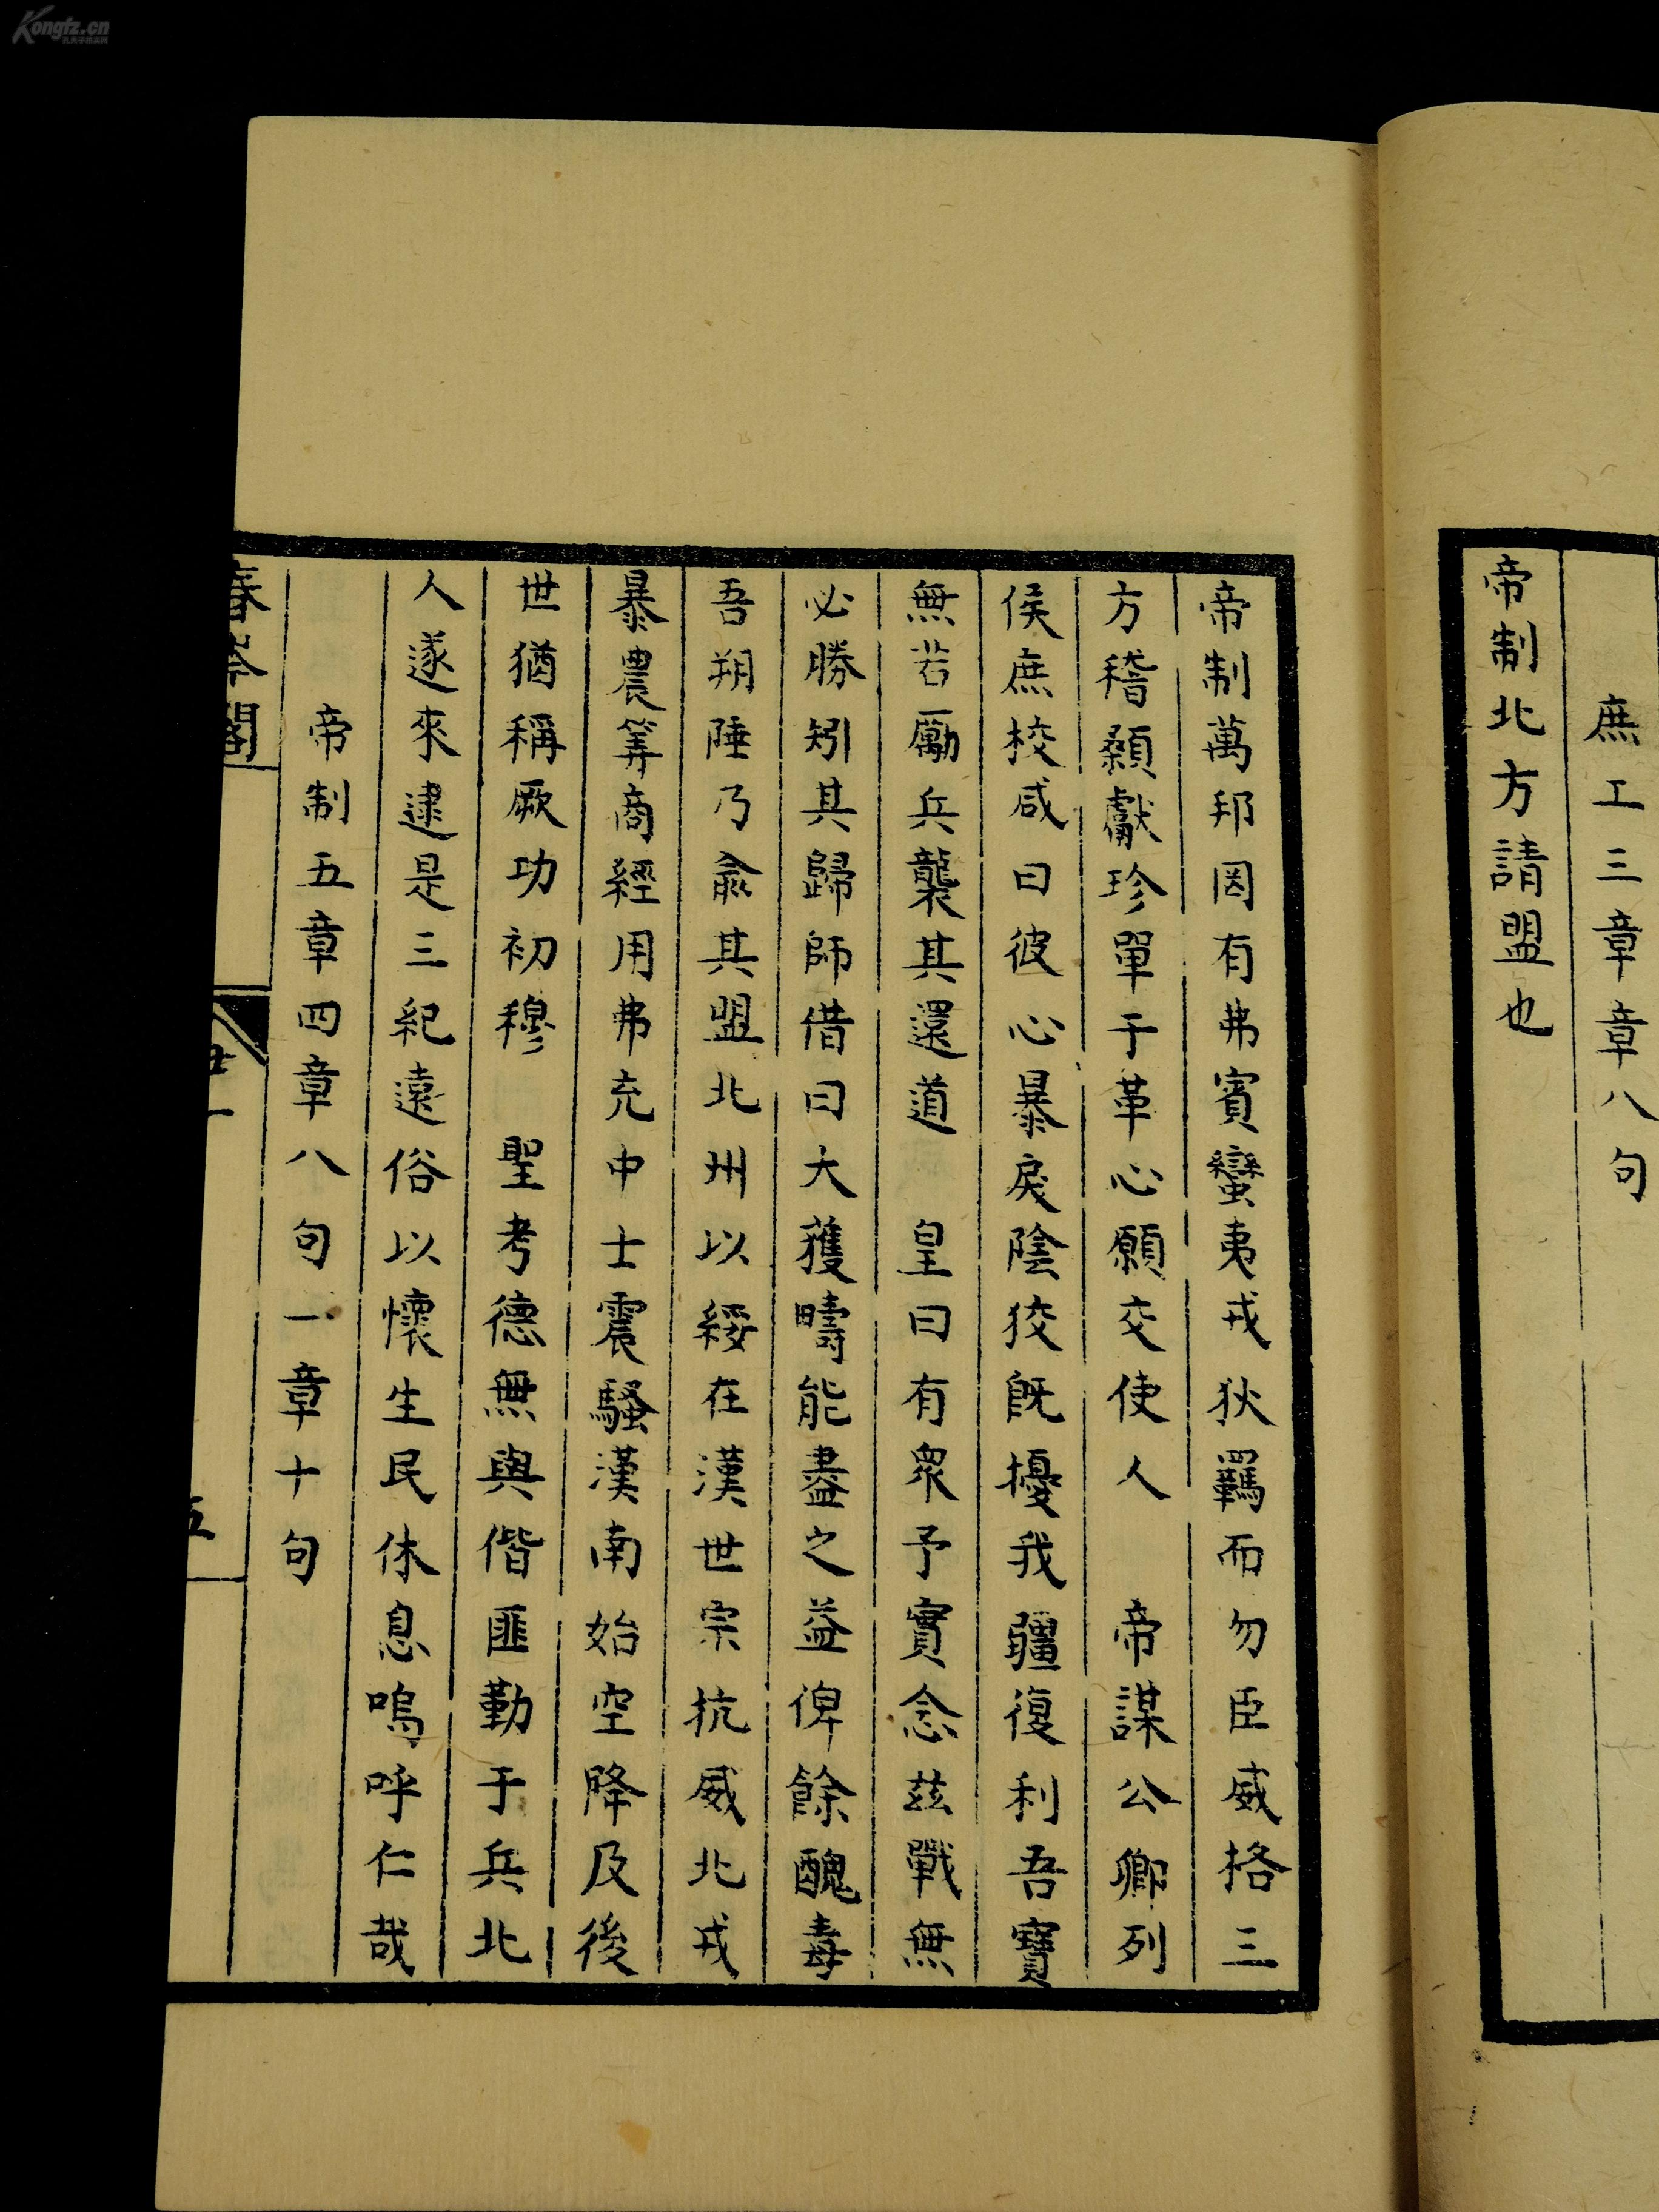 庶工三章章八句
帝制北方請盟也
帝制萬邦因有弗賓蠻夷戎狄羈而勿臣威格三
方稽顙獻珍單于革心願交使人 帝謀公卿列
侯庶校咸曰彼心暴戾陰狡旣擾我疆復利吾寶
無若勵兵襲其還道 皇曰有衆予實念兹戰無
必勝矧其歸師借曰大獲疇能盡之益俾餘醜毒
吾朔陲乃俞其盟北州以綏在漢世宗抗威北戎
暴農筭商經用弗充中士震騷漢南始空降及後
世猶稱厥功初穆 聖考德無與偕匪勤于兵北
人遂來逮是三紀遠俗以懷生民休息嗚呼仁哉
帝制五章四章八句一章十句
閣
五
Kongfz.cn
孔夫子旧书网